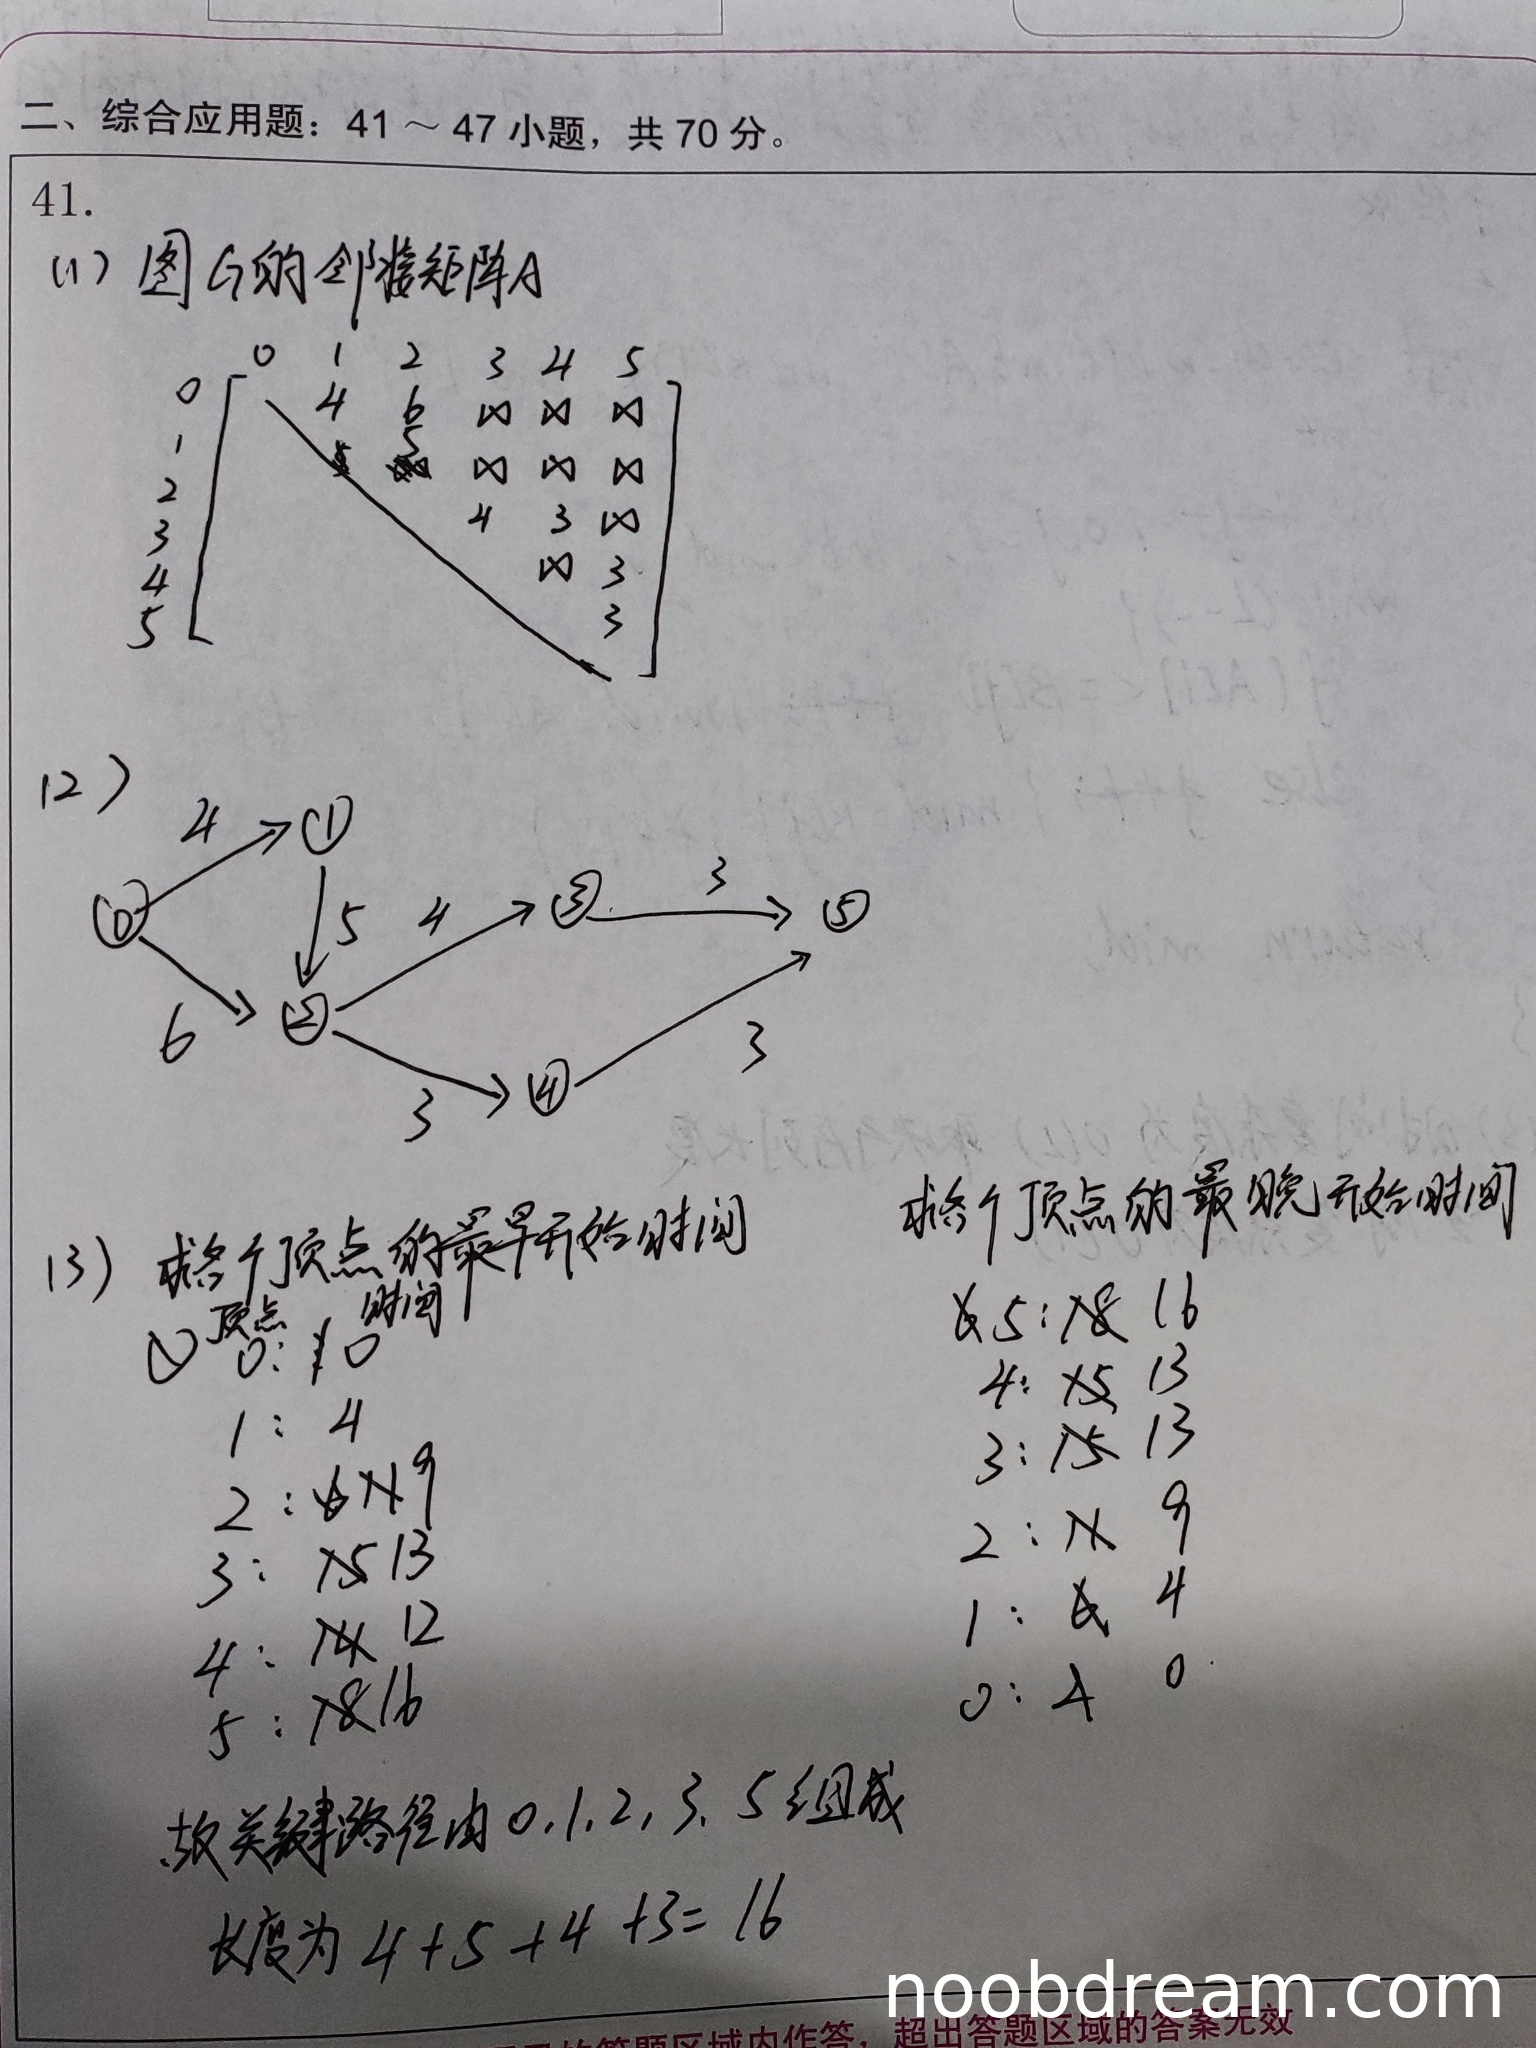 二、综合应用题：41～47小题，共70分。
41.
(1) 图G的邻接矩阵A
0 1 2 3 4 5
0 4 6 ∞ ∞ ∞
1 5 ∞ ∞ ∞
2 4 3 ∞
3 ∞ 3
4 3
5
(2)
4 ①
⓪ 5 4 ③ 3 ⑤
6 ② 3 ④ 3
(3) 求各个顶点的最早开始时间
顶点 时间
0: 0
1: 4
2: 9
3: 13
4: 12
5: 16
求各个顶点的最晚开始时间
5: 16
4: 13
3: 13
2: 9
1: 4
0: 0
故关键路径由0,1,2,3,5组成
长度为4+5+4+3=16
noobdream.com
答题区域内作答，超出答题区域的答案无效